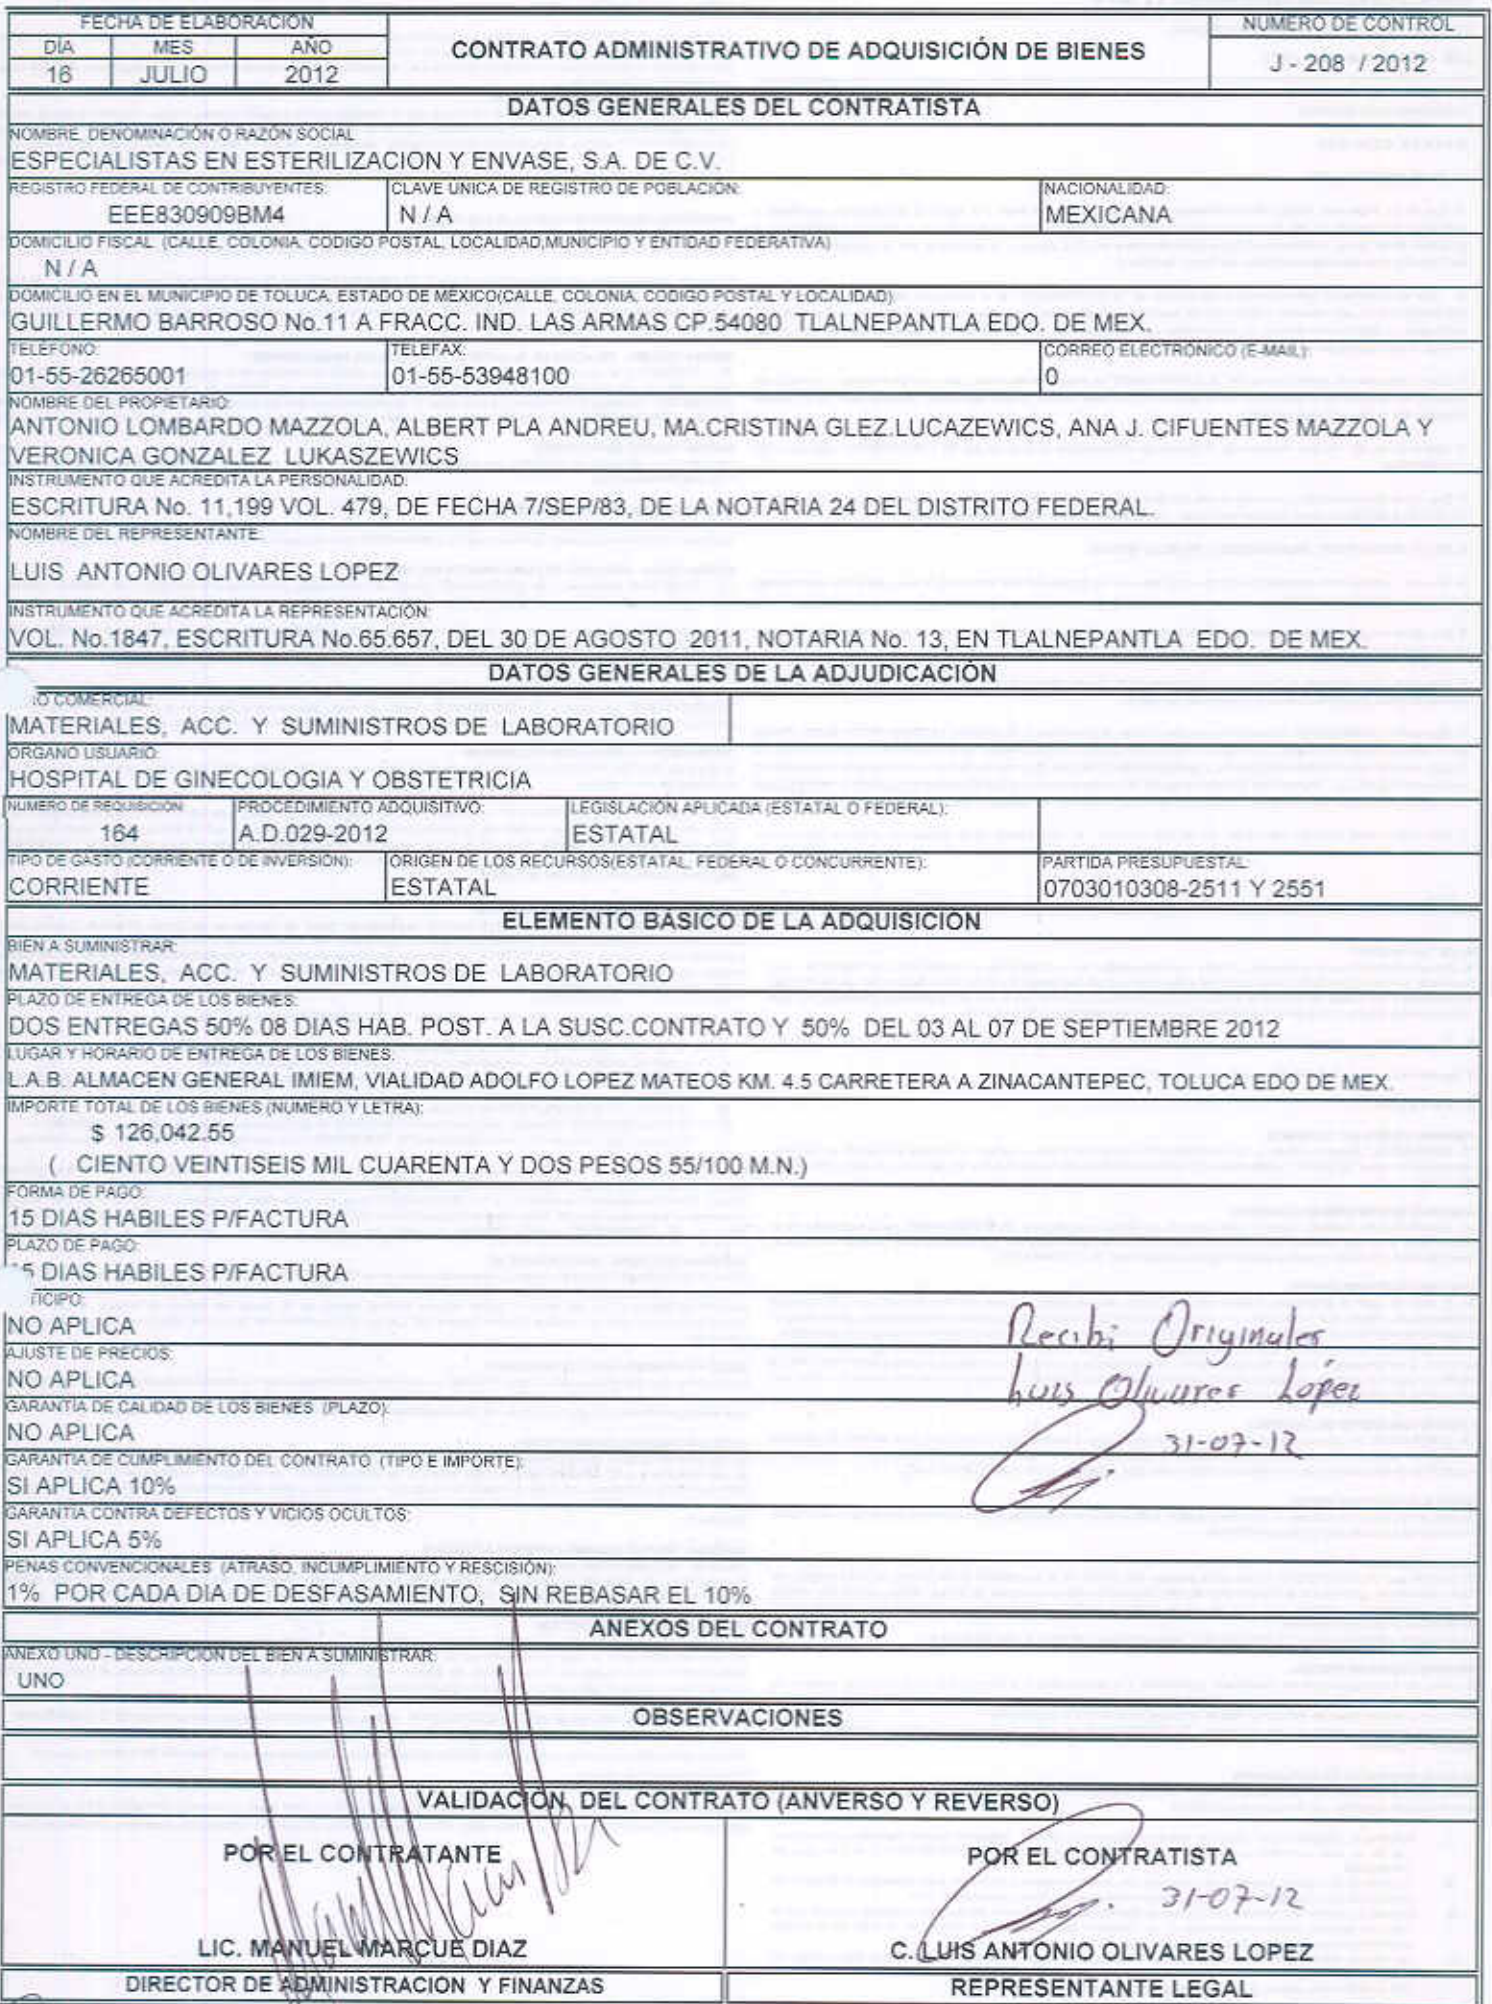 FECHA DE ELABORACIÓN
DÍA MES AÑO
16 JULIO 2012
CONTRATO ADMINISTRATIVO DE ADQUISICIÓN DE BIENES
NUMERO DE CONTROL
J - 208 / 2012
DATOS GENERALES DEL CONTRATISTA
NOMBRE, DENOMINACIÓN O RAZÓN SOCIAL
ESPECIALISTAS EN ESTERILIZACION Y ENVASE, S.A. DE C.V.
REGISTRO FEDERAL DE CONTRIBUYENTES: CLAVE UNICA DE REGISTRO DE POBLACIÓN: NACIONALIDAD:
EEE830909BM4 N / A MEXICANA
DOMICILIO FISCAL (CALLE, COLONIA, CODIGO POSTAL, LOCALIDAD,MUNICIPIO Y ENTIDAD FEDERATIVA)
N / A
DOMICILIO EN EL MUNICIPIO DE TOLUCA, ESTADO DE MÉXICO(CALLE, COLONIA, CODIGO POSTAL Y LOCALIDAD):
GUILLERMO BARROSO No.11 A FRACC. IND. LAS ARMAS CP.54080 TLALNEPANTLA EDO. DE MEX.
TELÉFONO: TELEFAX: CORREO ELECTRÓNICO (E-MAIL):
01-55-26265001 01-55-53948100 0
NOMBRE DEL PROPIETARIO:
ANTONIO LOMBARDO MAZZOLA, ALBERT PLA ANDREU, MA.CRISTINA GLEZ.LUCAZEWICS, ANA J. CIFUENTES MAZZOLA Y
VERONICA GONZALEZ LUKASZEWICS
INSTRUMENTO QUE ACREDITA LA PERSONALIDAD:
ESCRITURA No. 11,199 VOL. 479, DE FECHA 7/SEP/83, DE LA NOTARIA 24 DEL DISTRITO FEDERAL.
NOMBRE DEL REPRESENTANTE:
LUIS ANTONIO OLIVARES LOPEZ
INSTRUMENTO QUE ACREDITA LA REPRESENTACIÓN:
VOL. No.1847, ESCRITURA No.65.657, DEL 30 DE AGOSTO 2011, NOTARIA No. 13, EN TLALNEPANTLA EDO. DE MEX.
DATOS GENERALES DE LA ADJUDICACIÓN
COMERCIAL:
MATERIALES, ACC. Y SUMINISTROS DE LABORATORIO
ORGANO USUARIO:
HOSPITAL DE GINECOLOGIA Y OBSTETRICIA
NUMERO DE REQUISICIÓN: PROCEDIMIENTO ADQUISITIVO: LEGISLACIÓN APLICADA (ESTATAL O FEDERAL):
164 A.D.029-2012 ESTATAL
TIPO DE GASTO (CORRIENTE O DE INVERSIÓN): ORIGEN DE LOS RECURSOS(ESTATAL, FEDERAL O CONCURRENTE): PARTIDA PRESUPUESTAL:
CORRIENTE ESTATAL 0703010308-2511 Y 2551
ELEMENTO BASICO DE LA ADQUISICION
BIEN A SUMINISTRAR:
MATERIALES, ACC. Y SUMINISTROS DE LABORATORIO
PLAZO DE ENTREGA DE LOS BIENES:
DOS ENTREGAS 50% 08 DIAS HAB. POST. A LA SUSC.CONTRATO Y 50% DEL 03 AL 07 DE SEPTIEMBRE 2012
LUGAR Y HORARIO DE ENTREGA DE LOS BIENES:
L.A.B. ALMACEN GENERAL IMIEM, VIALIDAD ADOLFO LOPEZ MATEOS KM. 4.5 CARRETERA A ZINACANTEPEC, TOLUCA EDO DE MEX.
IMPORTE TOTAL DE LOS BIENES (NUMERO Y LETRA):
$ 126,042.55
( CIENTO VEINTISEIS MIL CUARENTA Y DOS PESOS 55/100 M.N.)
FORMA DE PAGO:
15 DIAS HABILES P/FACTURA
PLAZO DE PAGO:
15 DIAS HABILES P/FACTURA
TICIPO:
NO APLICA
AJUSTE DE PRECIOS:
NO APLICA
GARANTÍA DE CALIDAD DE LOS BIENES (PLAZO):
NO APLICA
GARANTIA DE CUMPLIMIENTO DEL CONTRATO (TIPO E IMPORTE):
SI APLICA 10%
GARANTÍA CONTRA DEFECTOS Y VICIOS OCULTOS:
SI APLICA 5%
Recibi Originales
Luis Olivares López
31-07-12
PENAS CONVENCIONALES (ATRASO, INCUMPLIMIENTO Y RESCISIÓN):
1% POR CADA DIA DE DESFASAMIENTO, SIN REBASAR EL 10%
ANEXOS DEL CONTRATO
ANEXO UNO - DESCRIPCIÓN DEL BIEN A SUMINISTRAR:
UNO
OBSERVACIONES
VALIDACIÓN DEL CONTRATO (ANVERSO Y REVERSO)
POR EL CONTRATANTE POR EL CONTRATISTA
31-07-12
LIC. MANUEL MARCUE DIAZ C. LUIS ANTONIO OLIVARES LOPEZ
DIRECTOR DE ADMINISTRACION Y FINANZAS REPRESENTANTE LEGAL